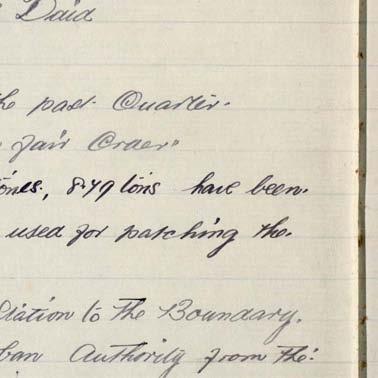 Daid
he past Quarter.
fair Order"
ones, 849 tons have been.
used for patching the.
Station to the Boundary.
ban Authority from the: